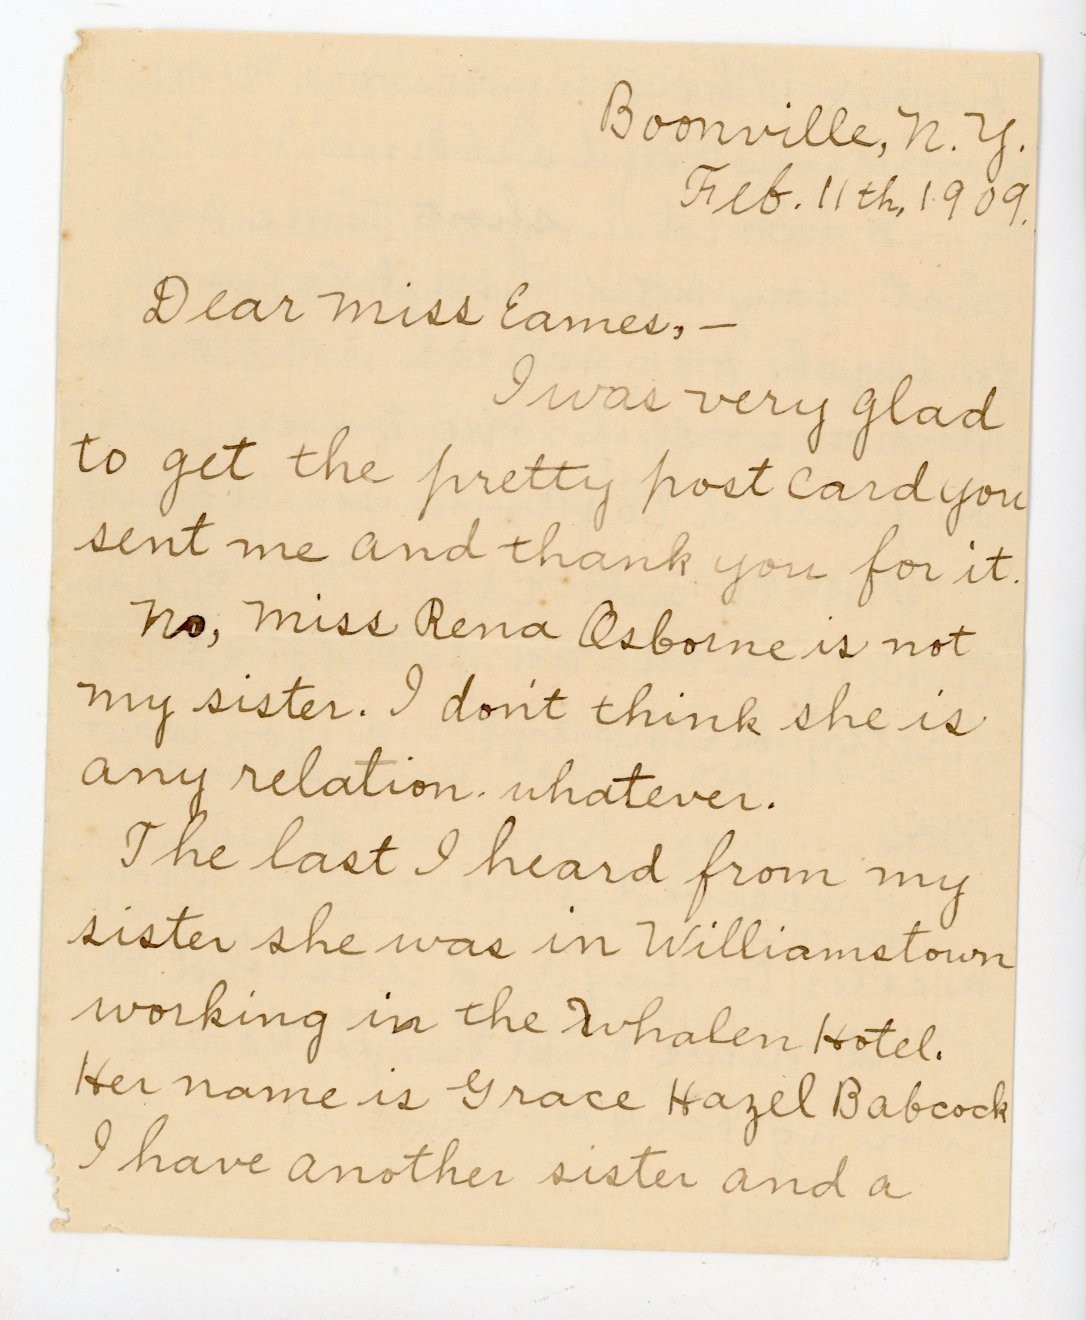 Boonville, N.Y.
Feb. 11th, 1909.
Dear Miss Eames, —
I was very glad
to get the pretty post card you
sent me and thank you for it.
No, Miss Rena Osborne is not
my sister. I don't think she is
any relation whatever.
The last I heard from my
sister she was in Williamstown
working in the Whalen Hotel.
Her name is Grace Hazel Babcock
I have another sister and a